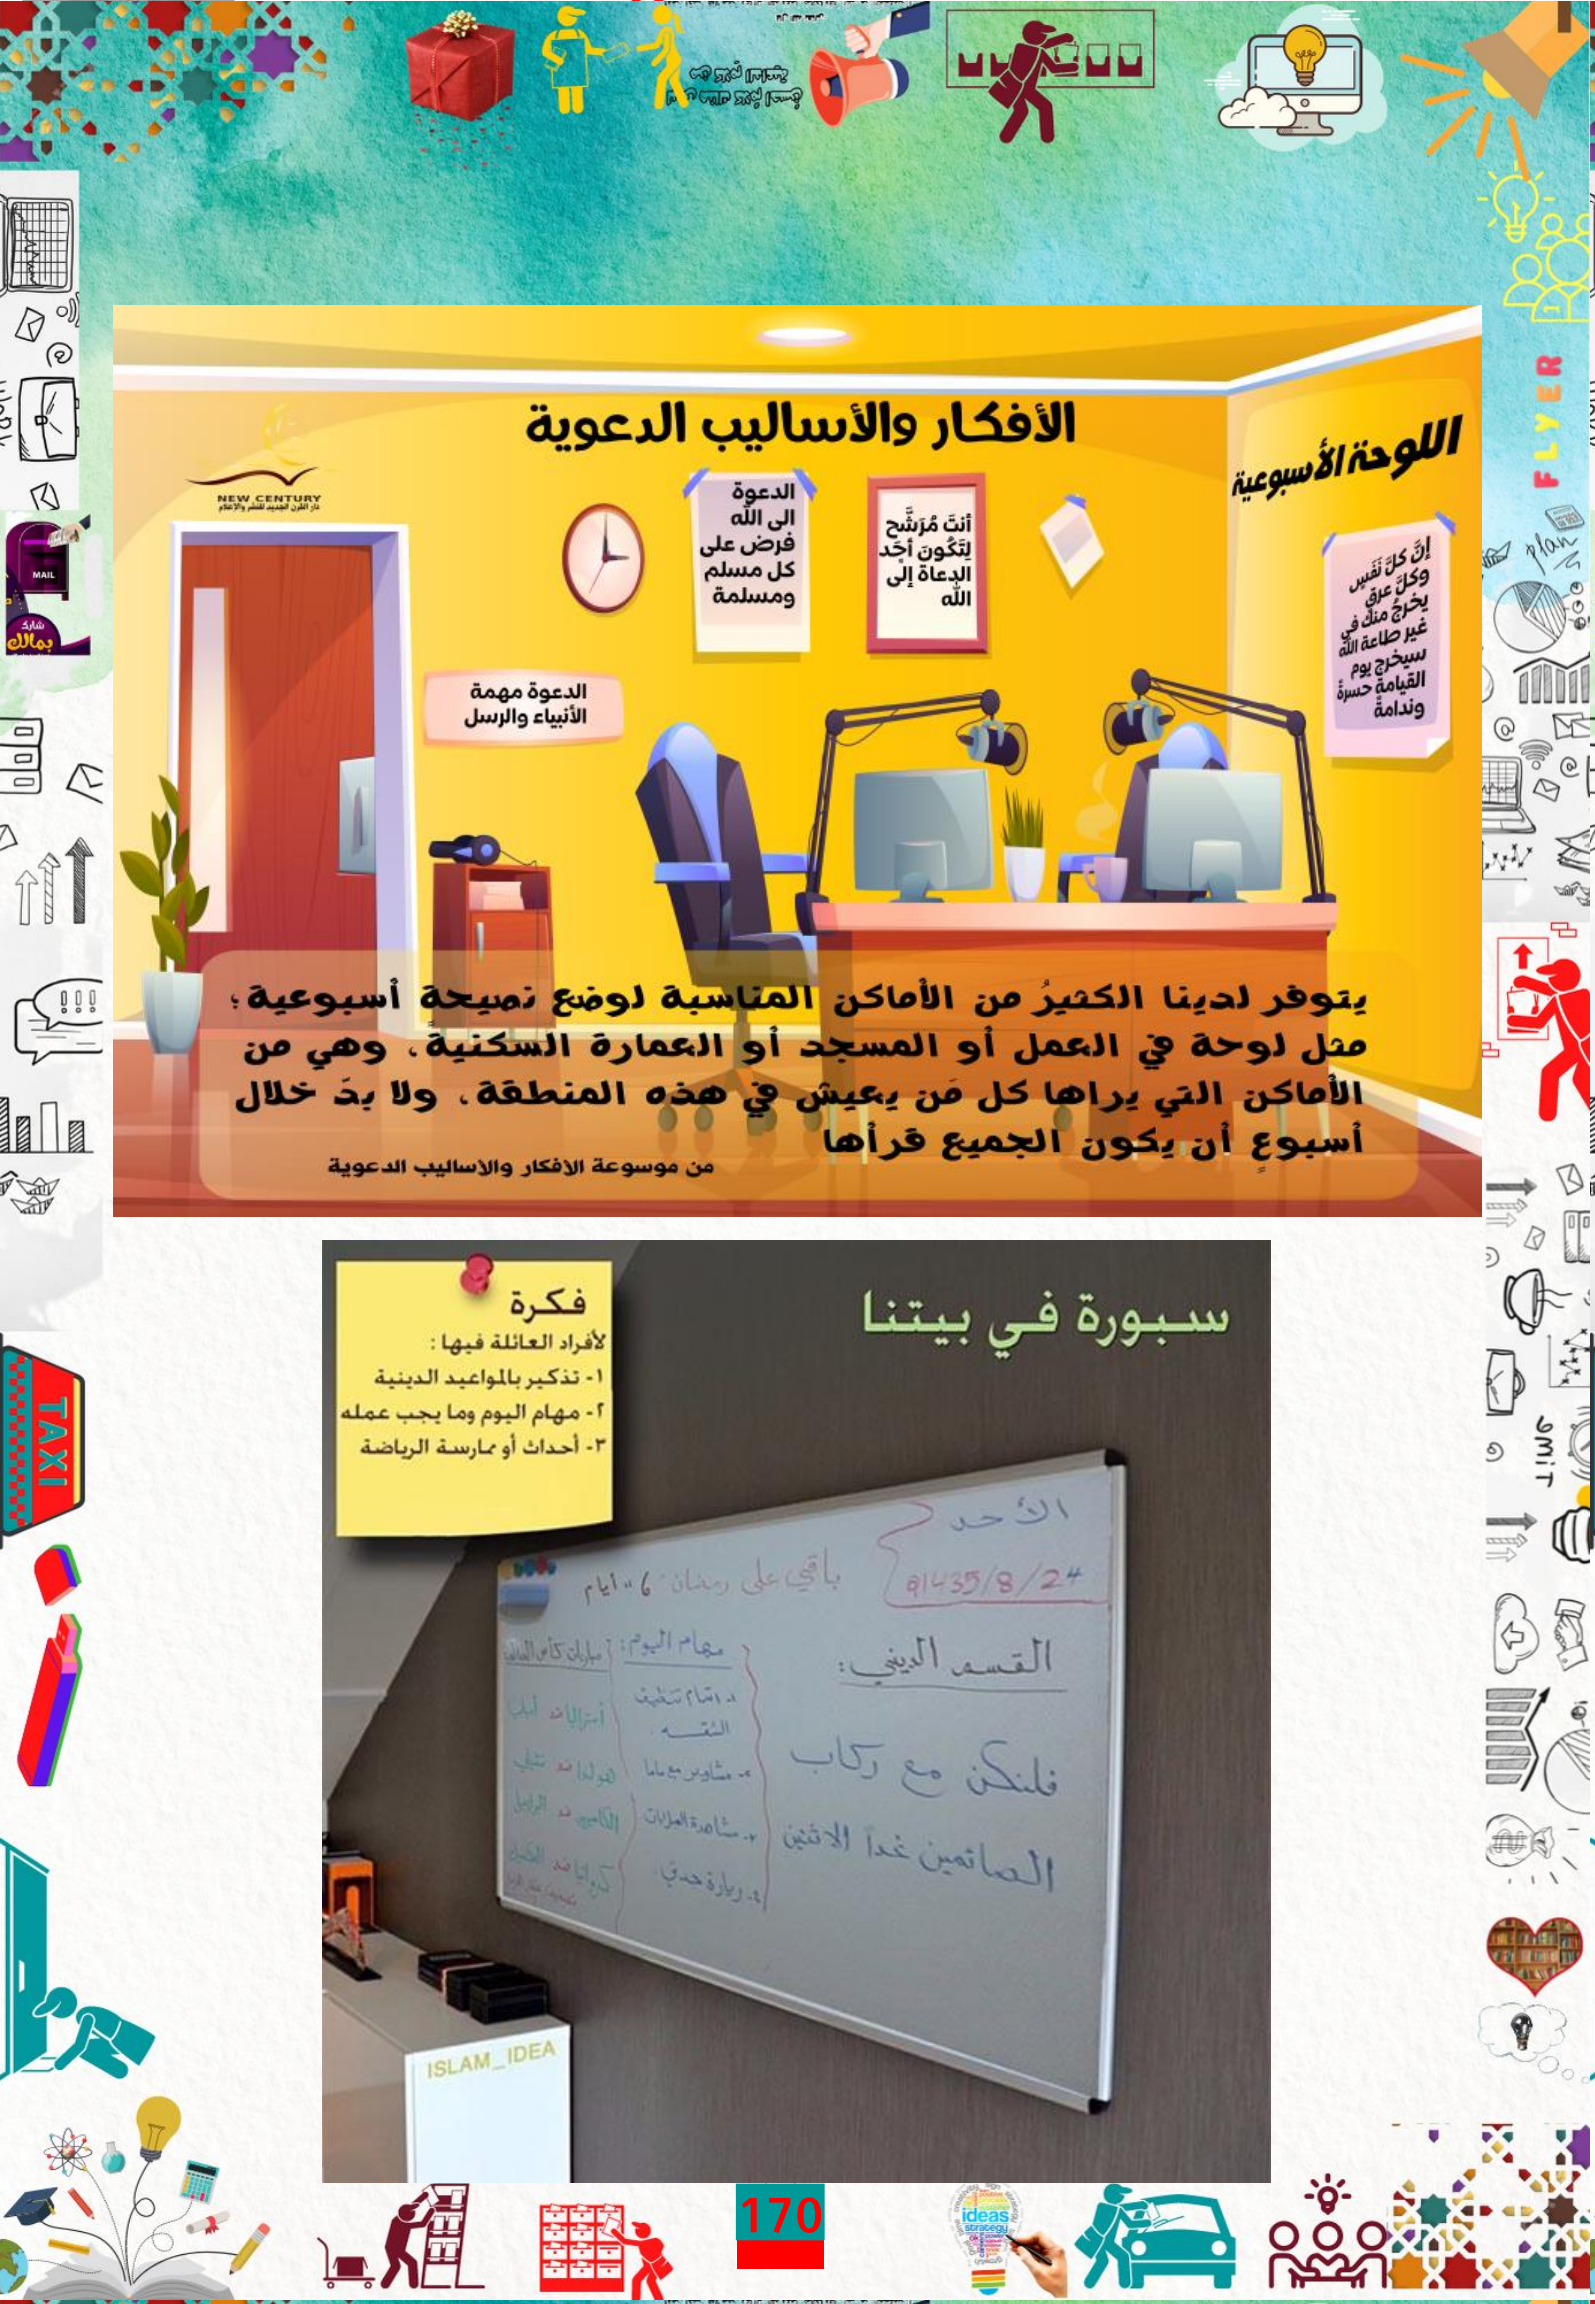 FLYER
plan
MAIL
شارك
بمالك
TAXI
الأفكار والأساليب الدعوية
اللوحة الأسبوعية
NEW CENTURY
دار القرن الجديد للنشر والإعلام
الدعوة
الى الله
فرض على
كل مسلم
ومسلمة
أنتَ مُرَشَّح
لِتَكُونَ أحَد
الدعاة إلى
الله
إنَّ كلَّ نَفَسٍ
وكلَّ عرقٍ
يخرجُ منك في
غير طاعة الله
سيخرج يوم
القيامة حسرةً
وندامةً
الدعوة مهمة
الأنبياء والرسل
يتوفر لدينا الكثيرُ من الأماكن المناسبة لوضع نصيحة أسبوعية؛
مثل لوحة في العمل أو المسجد أو العمارة السكنية، وهي من
الأماكن التي يراها كل مَن يعيش في هذه المنطقة، ولا بدَّ خلال
أسبوعٍ أن يكون الجميع قرأها
من موسوعة الافكار والاساليب الدعوية
سبورة في بيتنا
فكرة
لأفراد العائلة فيها :
١- تذكير بالمواعيد الدينية
٢- مهام اليوم وما يجب عمله
٣- أحداث أو ممارسة الرياضة
الأحد
1435/8/24
باقي على رمضان "6" أيام
القسم الديني:
فلنكن مع ركاب
الصائمين غداً الاثنين
مهام اليوم:
مشاوير مع ماما
مباريات كأس العالم
ISLAM_IDEA
ideas
strategy
170